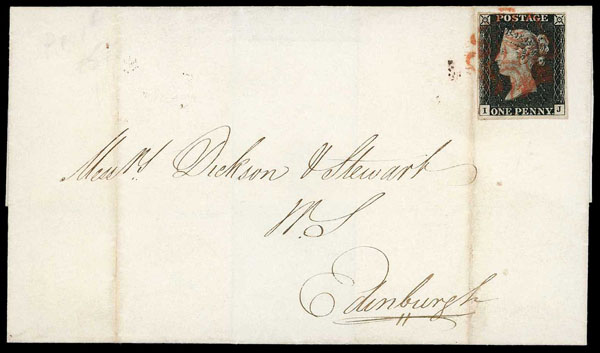 POSTAGE
I J
ONE PENNY
Messrs Dickson & Stewart
W.S
Edinburgh